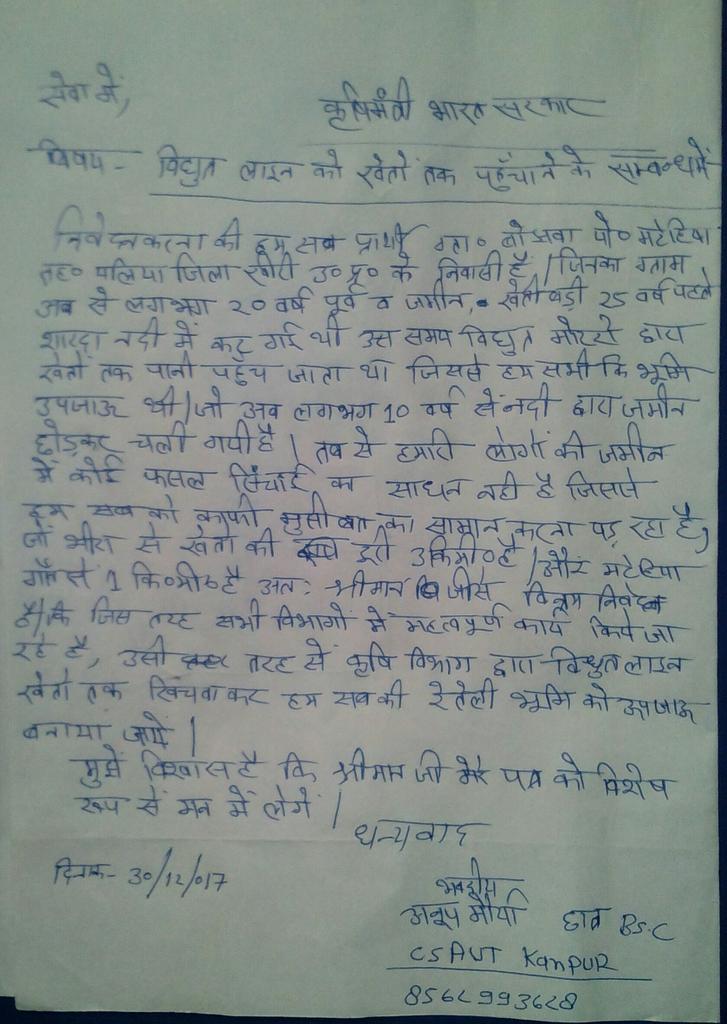 सेवा में,
कृषिमंत्री भारत सरकार
विषय - विद्युत लाइन को खेतों तक पहुँचाने के सम्बन्ध में
निवेदन करना की हम सब प्रार्थी ग्रा० बोझवा पो० मटेहिया
तह० पलिया जिला खीरी उ० प्र० के निवासी है / जिनका ग्राम
अब से लगभग २० वर्ष पूर्व व जमीन, खेती बड़ी 25 वर्ष पहले
शारदा नदी में कट गई थी उस समय विद्युत मोटरो द्वारा
खेतों तक पानी पहुच जाता था जिससे हम सभी कि भूमि
उपजाऊ थी / जो अब लगभग 10 वर्ष से नदी द्वारा जमीन
छोड़कर चली गयी है | तब से हमारी लोगों की जमीन
में कोई फसल सिंचाई का साधन नही है जिससे
हम सब को काफी मुसीबत का सामान करना पड़ रहा है,
जो भीरा से खेतो की दूरी 3 कि०मी० है / और मटेहिया
गाँव से 1 कि०मी० है अतः श्रीमान जी से विन्रम निवेदन
है / कि जिस तरह सभी विभागों में महत्वपूर्ण कार्य किये जा
रहे है, उसी तरह से कृषि विभाग द्वारा विद्युत लाइन
खेतो तक खिंचवा कर हम सब की रेतेली भूमि को उपजाऊ
बनाया जाये |
मुझे विश्वास है कि श्रीमान जी मेरे पत्र को विशेष
रूप से मन में लेगें |
धन्यवाद
दिनाक - 30/12/017
भवदीय
अनूप मौर्या छात्र BS.C
CSAUT KanpuR
8562993628